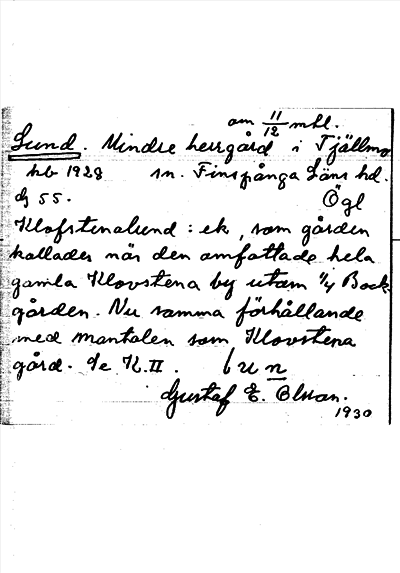 om 11/12 mtl.
Lund. Mindre herrgård i Tjällmo
kb 1928 sn. Finspånga Läns hd.
dj 55. Ögl
Klofstenalund: ek, som gården
kallades när den omfattade hela
gamla Klovstena by utom 1/4 Back-
gården. Nu samma förhållande
med mantalen som Klovstena
gård. Se K. II.
Gustaf E. Olsson.
1930